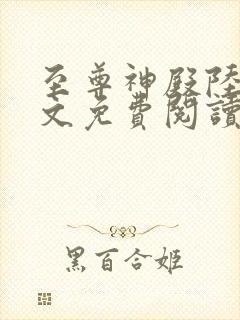 至尊神殿陸
文免費閱讀
黑百合姬